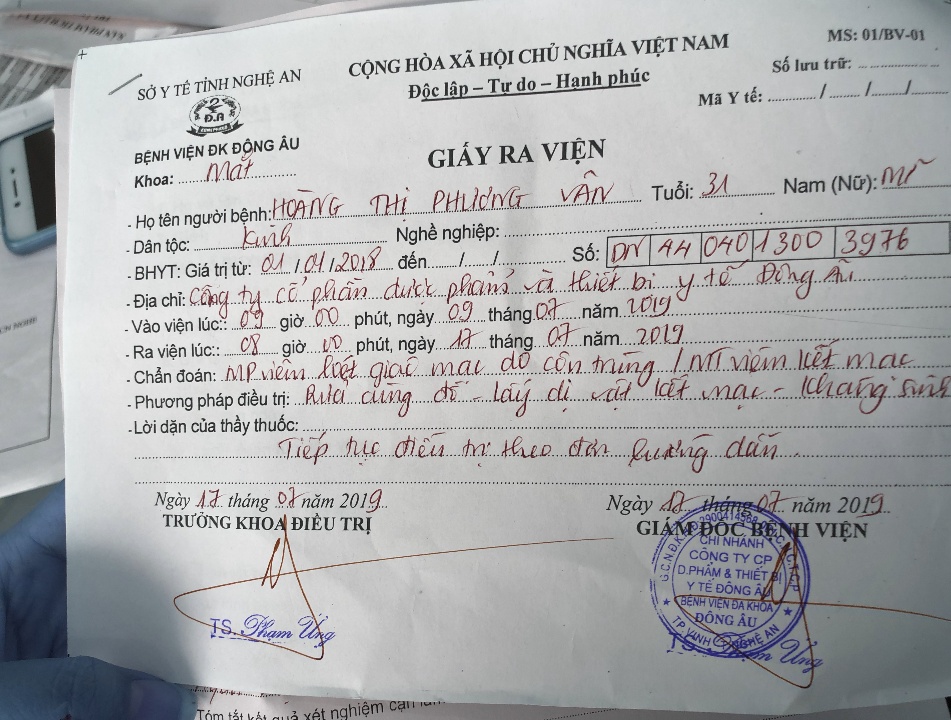 MS: 01/BV-01
SỞ Y TẾ TỈNH NGHỆ AN
CỘNG HÒA XÃ HỘI CHỦ NGHĨA VIỆT NAM
Số lưu trữ: ...............
Độc lập – Tự do – Hạnh phúc
Mã Y tế: ........../....../......../........
Đ.A
BỆNH VIỆN ĐK ĐÔNG ÂU
GIẤY RA VIỆN
Khoa: Mắt
- Họ tên người bệnh: HOÀNG THỊ PHƯƠNG VÂN Tuổi: 31 Nam (Nữ): Nữ
- Dân tộc: Kinh Nghề nghiệp:
- BHYT: Giá trị từ: 01/01/2018 đến ....../....../........ Số: DN 44 040 1300 3976
- Địa chỉ: Công ty cổ phần dược phẩm và thiết bị y tế Đông Âu
- Vào viện lúc:: 09 giờ 00 phút, ngày 09 tháng 07 năm 2019
- Ra viện lúc:: 08 giờ 00 phút, ngày 17 tháng 07 năm 2019
- Chẩn đoán: MP viêm loét giác mạc do côn trùng / MT viêm kết mạc
- Phương pháp điều trị: Rửa cùng đồ - lấy dị vật kết mạc - Kháng sinh
- Lời dặn của thầy thuốc:
Tiếp tục điều trị theo đơn hướng dẫn.
Ngày 17 tháng 07 năm 2019
Ngày 17 tháng 07 năm 2019
TRƯỞNG KHOA ĐIỀU TRỊ
GIÁM ĐỐC BỆNH VIỆN
CHI NHÁNH
CÔNG TY CP
D.PHẨM & THIẾT BỊ
Y TẾ ĐÔNG ÂU
BỆNH VIỆN ĐA KHOA
ĐÔNG ÂU
TP VINH NGHỆ AN
TS. Phạm Ứng
TS. Phạm Ứng
Tóm tắt kết quả xét nghiệm cận lâm